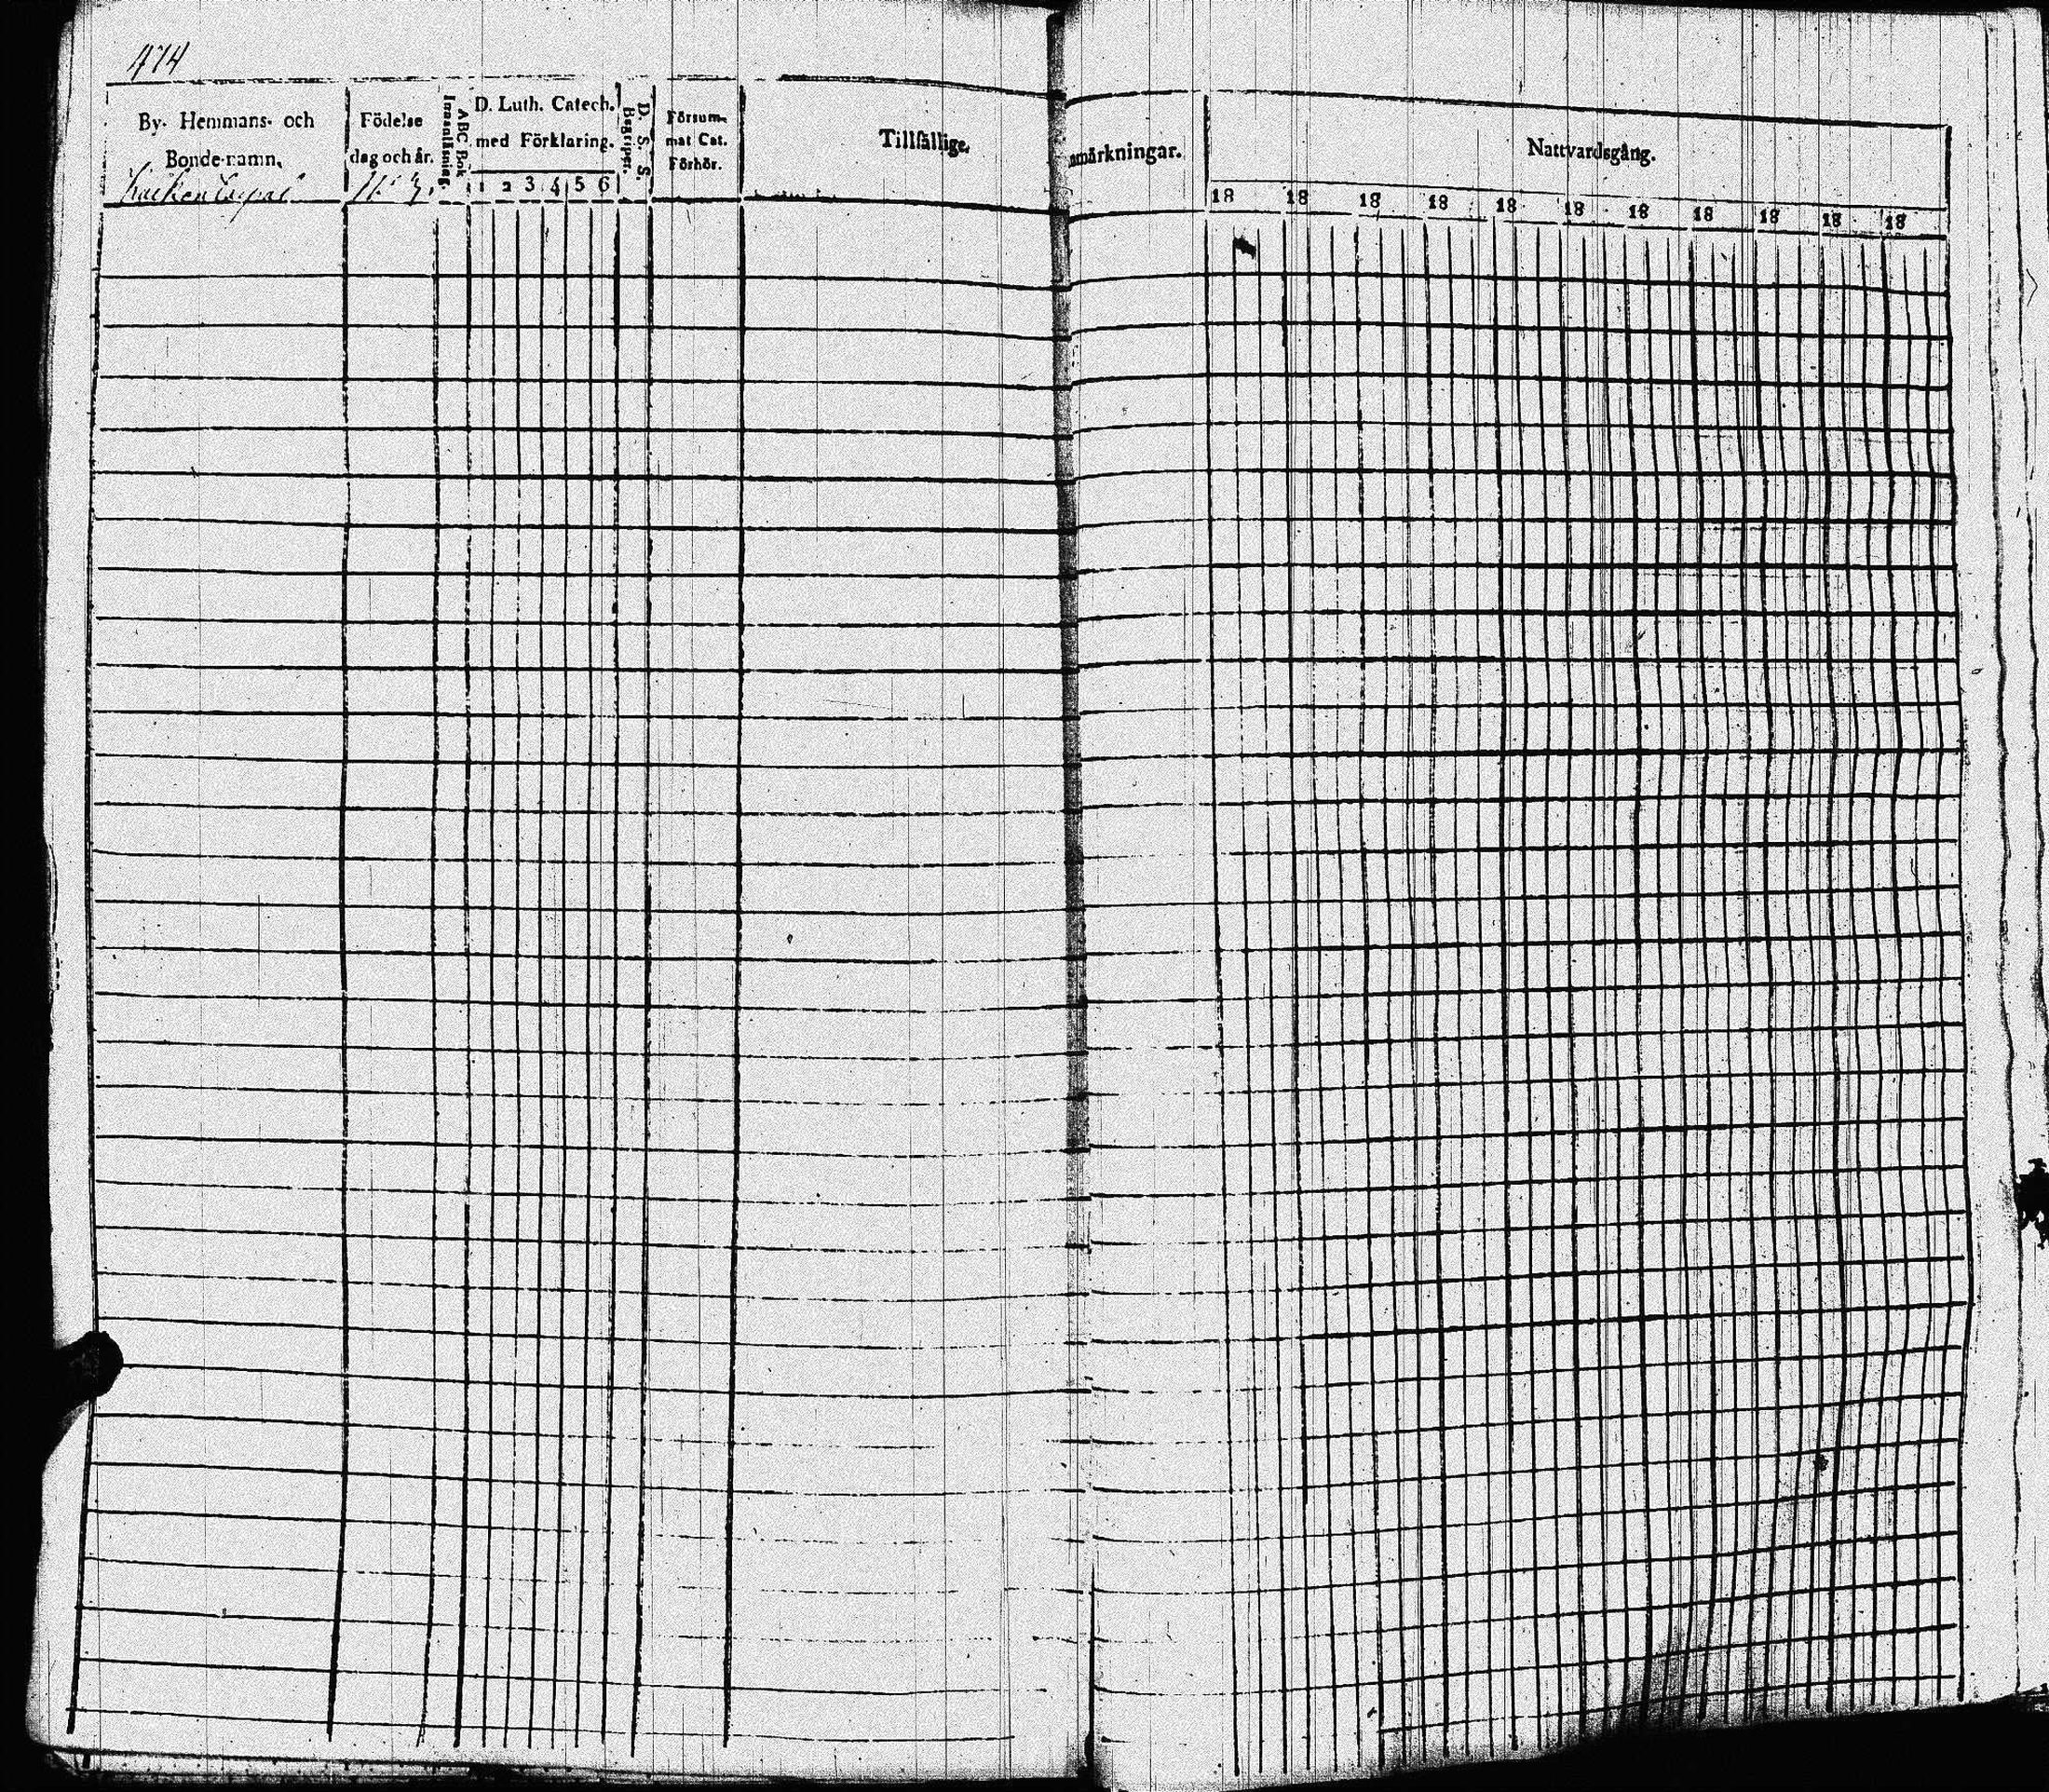 474
By- Hemmans- och
Bonde-namn.
Födelse
dag och år.
ABC Bok
Innanläsning.
D. Luth. Catech.
med Förklaring.
1 2 3 4 5 6
D. S. S.
Begriper.
Försum-
mat Cat.
Förhör.
Tillfällige
nmärkningar.
Nattvardsgång.
18 18 18 18 18 18 18 18 18 18 18